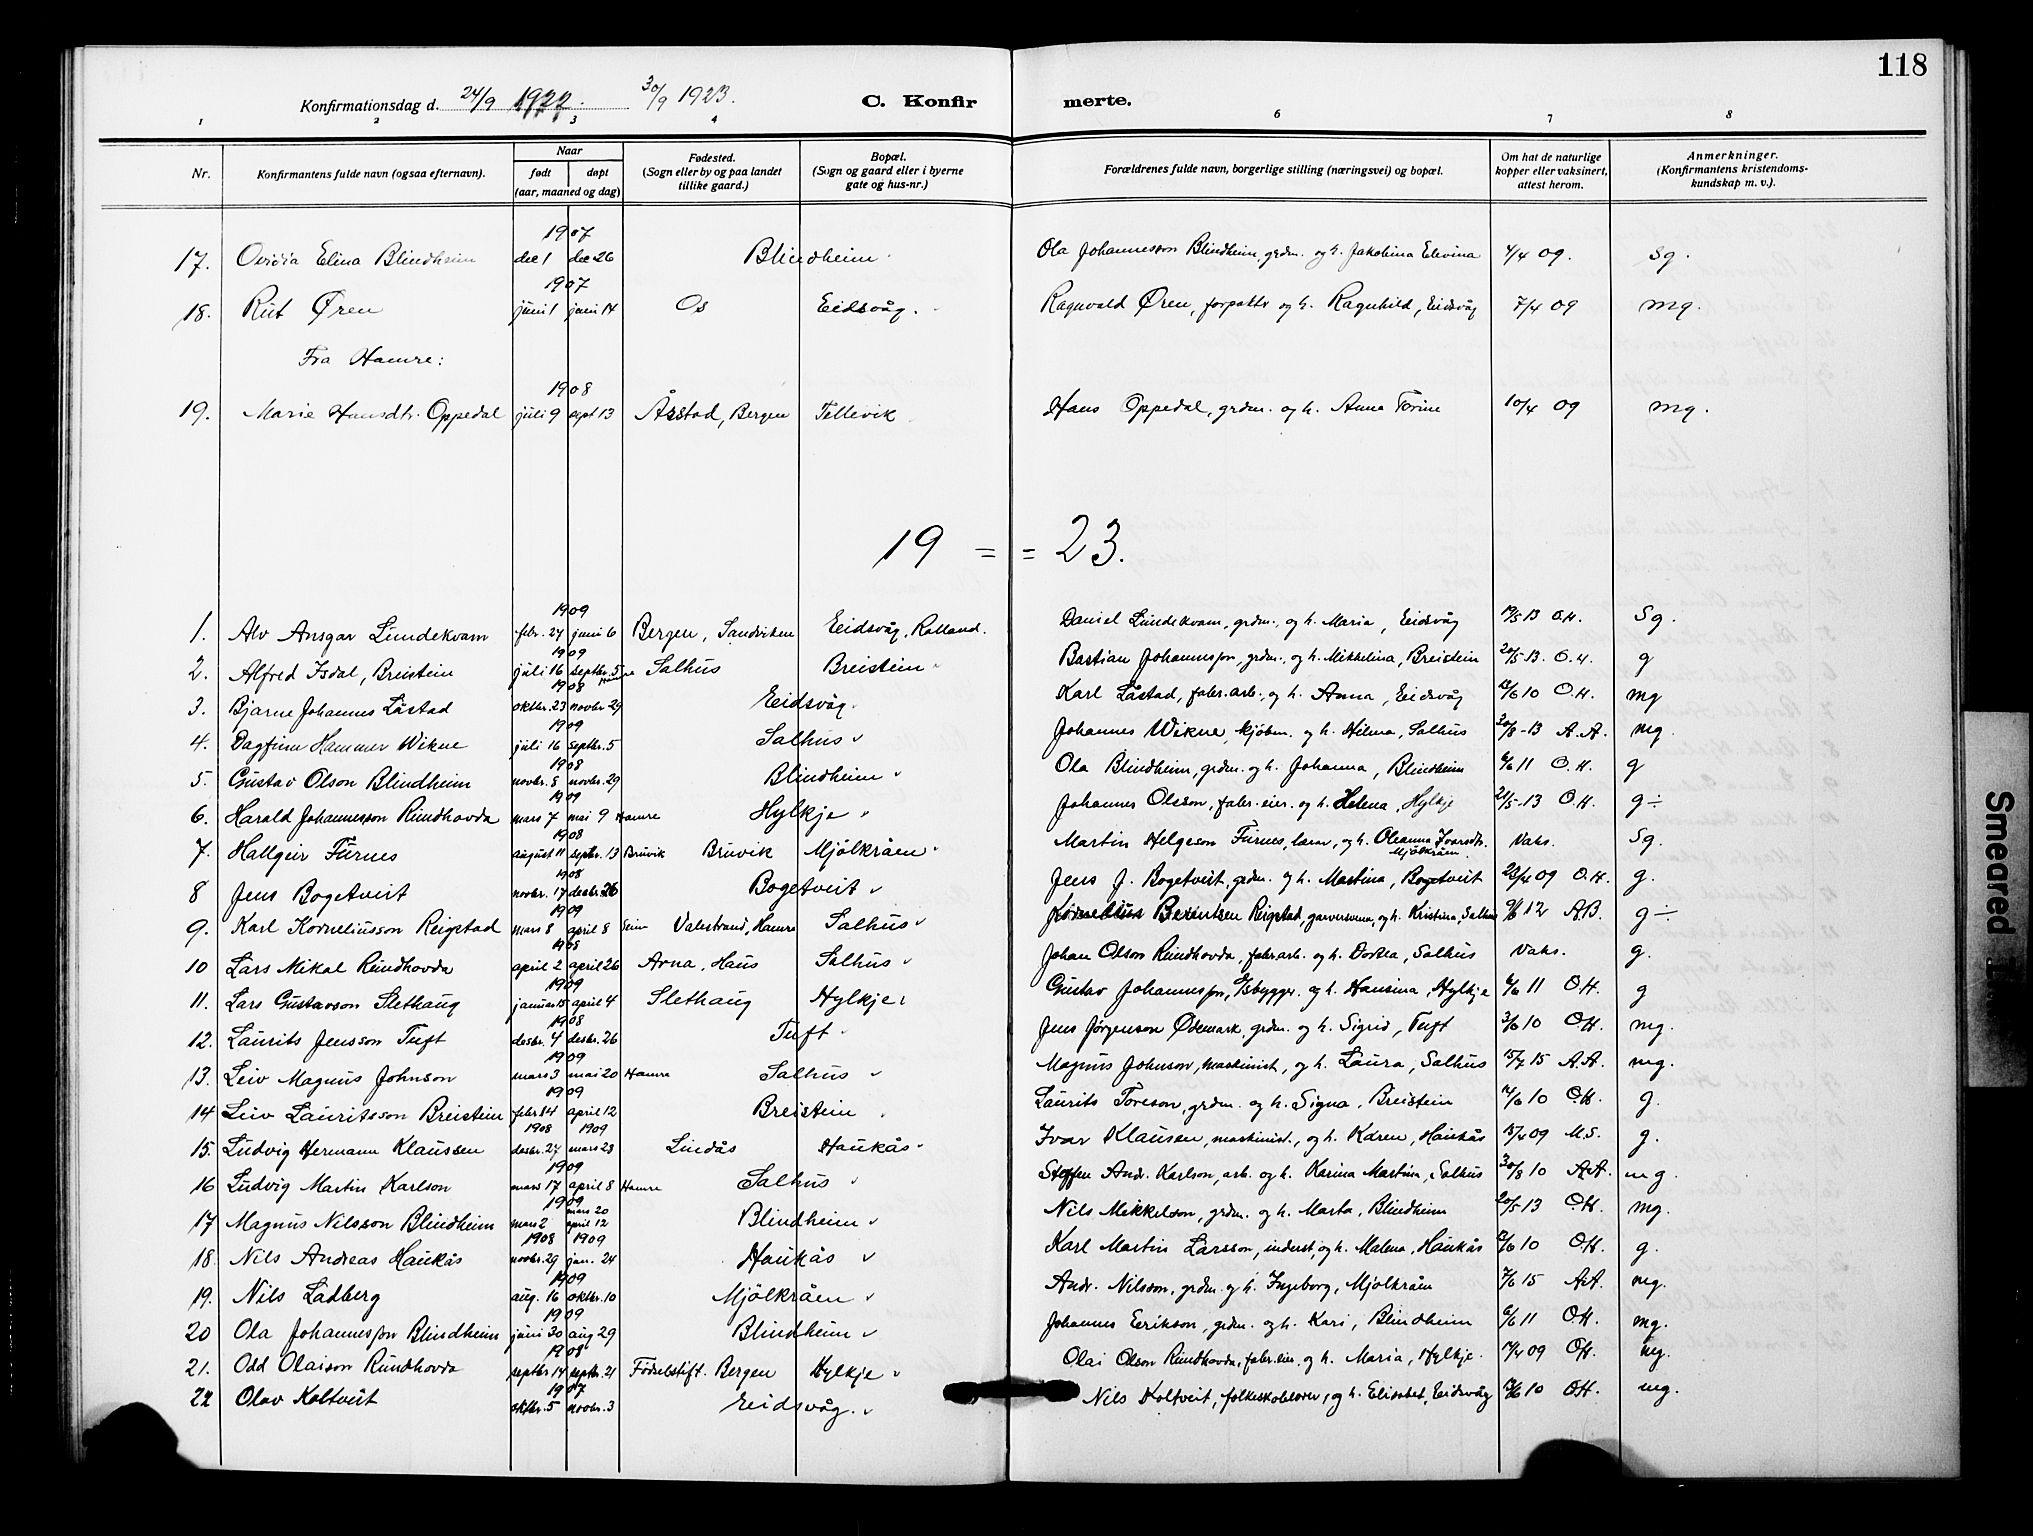 118
Konfirmationsdag d. 24/9 1922. 30/9 1923. C. Konfir merte.
1 2 3 4 6 7 8
Nr. Konfirmantens fulde navn (ogsaa efternavn). Naar født døpt (aar, maaned og dag) Fødested. (Sogn eller by og paa landet tillike gaard.) Bopæl. (Sogn og gaard eller i byerne gate og hus-nr.) Forældrenes fulde navn, borgerlige stilling (næringsvei) og bopæl. Om hat de naturlige kopper eller vaksinert, attest herom. Anmerkninger. (Konfirmantens kristendoms-kundskap m. v.).
1907
17. Ovidia Elina Blindheim dec 1 dec 26 Blindheim Ola Johannesson Blindheim, grdm. og h. Jakobina Elevina 4/4 09. Sg.
1907
18. Rut Øren juni 1 juni 14 Os Eidsvåg. Ragnvald Øren, forpaktr og h. Ragnhild, Eidsvåg 7/4 09 mg.
Fra Hamre:
1908
19. Marie Hansdtr. Oppedal juli 9 sept 13 Årstad, Bergen Tellevik Hans Oppedal, grdm. og h. Anna Torine 10/4 09 mg.
19 = = 23.
1909
1. Alv Ansgar Lundekvam febr. 24 juni 6 Bergen, Sandviken Eidsvåg, Rolland. Daniel Lundekvam, grdm., og h. Maria, Eidsvåg 19/5 13 O.H. Sg.
1909
2. Alfred Isdal, Breistein juli 16 septbr. 5 Hamre Salhus Breistein Bastian Johannesson, grdm., og h. Mikkelina, Breistein 20/5 13. O.H. g
1908
3. Bjarne Johannes Låstad oktbr. 23 novbr 29 Eidsvåg. Karl Låstad, fabr. arb., og h. Anna, Eidsvåg /6 10 O.H. mg
1909
4. Dagfinn Hammer Wikne juli 16 septbr. 5 Salhus Johannes Wikne, kjøbm. og h. Hilma, Salhus 30/8-13 A.A. mg.
1908
5. Gustav Olson Blindheim novbr. 8 novbr. 29 Blindheim Ola Blindheim, grdm. og h. Johanna, Blindheim 6/6 11 O.H. g
1909
6. Harald Johannesson Rundhovda mars 7 mai 9 Hamre Hylkje Johannes Olsson, fabr. eier. og h. Helena, Hylkje 21/5-13 O.H. g÷
1908
7. Hallgeir Furnes august 11 septbr. 13 Bruvik Bruvik Mjölkråen Martin Helgeson Furnes, lærer, og h. Oleanna Ivarsdtr. Mjölkråen. Vaks. Sg.
1908
8 Jens Bogetveit novbr. 17 desbr. 26 Bogetveit Jens J. Bogetveit, grdm. og h. Martina, Bogetveit 23/4 09 O.H. g.
1909
9. Karl Korneliusson Reigstad mars 8 april 8 Seim Valestrand, Hamre Salhus Kornelius Berentsen Reigstad, garversvenn, og h. Kristina, Salhus 9/6 12 A.B. g÷
1908
10 Lars Mikal Rundhovda april 2 april 26 Arna, Haus Salhus Johan Olson Rundhovda, fabr. arb. og h. Dortea, Salhus Vaks. g.
1909
11. Lars Gustavson Slethaug januar 15 april 4 Slethaug Hylkje Gustav Johannesson, G/sbygger. og h. Hansina, Hylkje 6/6 11 O.H. g
1908
12. Laurits Jensson Tuft desbr. 4 desbr. 26 Tuft Jens Jörgenson Ødemark, grdm. og h. Sigrid, Tuft 3/6 10 O.H. mg.
1909
13. Leiv Magnus Johnson mars 3 mai 20 Hamre Salhus Magnus Johnson, maskinist, og h. Laura, Salhus 15/7 15 A.A. mg.
1909
14 Leiv Lauritsson Breistein febr 14 april 12 Breistein Laurits Toreson, grdm. og h. Signa, Breistein /6 10 O.H. g.
1908 1909
15. Ludvig Hermann Klaussen desbr. 27 mars 28 Lindås Haukås Ivar Klausen, maskinist, og h. Karen, Haukås 15/4 09 M.S. g.
1909
16 Ludvig Martin Karlson mars 17 april 8 Hamre Salhus Steffen Andr. Karlson, arb. og h. Karina Martina, Salhus 30/8 10 A.A. mg.
1909
17 Magnus Nilsson Blindheim mars 2 mars 20 april 12 Blindheim Nils Mikkelson, grdm. og h. Marta, Blindheim 20/5 13 O.H. mg.
1908 1909
18. Nils Andreas Haukås novbr. 29 jan. 24 Haukås Karl Martin Larsson, inderst, og h. Malena, Haukås /6 10 O.H. g.
1909
19. Nils Ladberg aug. 16 oktbr. 10 Mjölkråen Andr. Nilsson, grdm. og h. Ingeborg, Mjölkråen 7/6 15 A.A. mg.
1909
20 Ola Johannesson Blindheim juni 30 aug 29 Blindheim Johannes Eerikson, grdm. og h. Kari, Blindheim 6/6 11 O.H. mg.
1908
21. Odd Olaison Rundhovda septbr 14 septbr. 21 Fødselstift. Bergen Hylkje Olai Olson Rundhovda, fabr. eier. og h. Maria, Hylkje 14/4 09 O.H. mg.
1907
22 Olav Koltveit oktbr. 5 novbr. 3 Eidsvåg. Nils Koltveit, folkeskolelærer, og h. Elisabet, Eidsvåg /6 10 O.H. mg.
Smeared